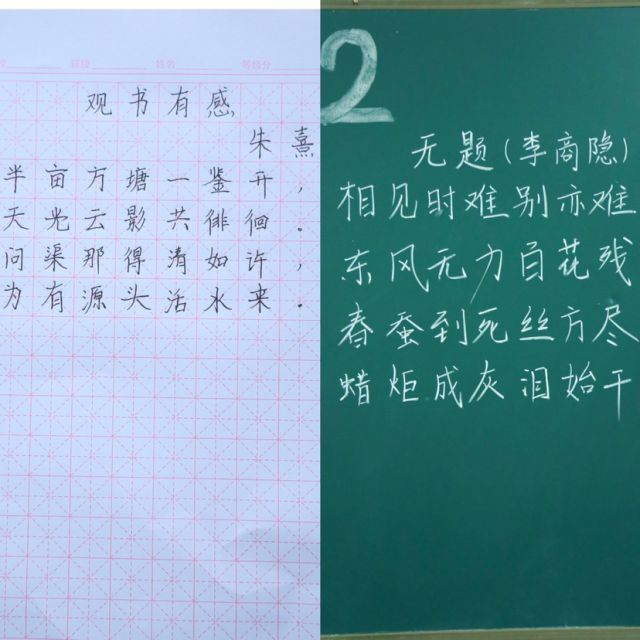 班级 姓名 等级分
观书有感
朱熹
半亩方塘一鉴开，
天光云影共徘徊。
问渠那得清如许，
为有源头活水来。
2
无题（李商隐）
相见时难别亦难
东风无力百花残
春蚕到死丝方尽
蜡炬成灰泪始干